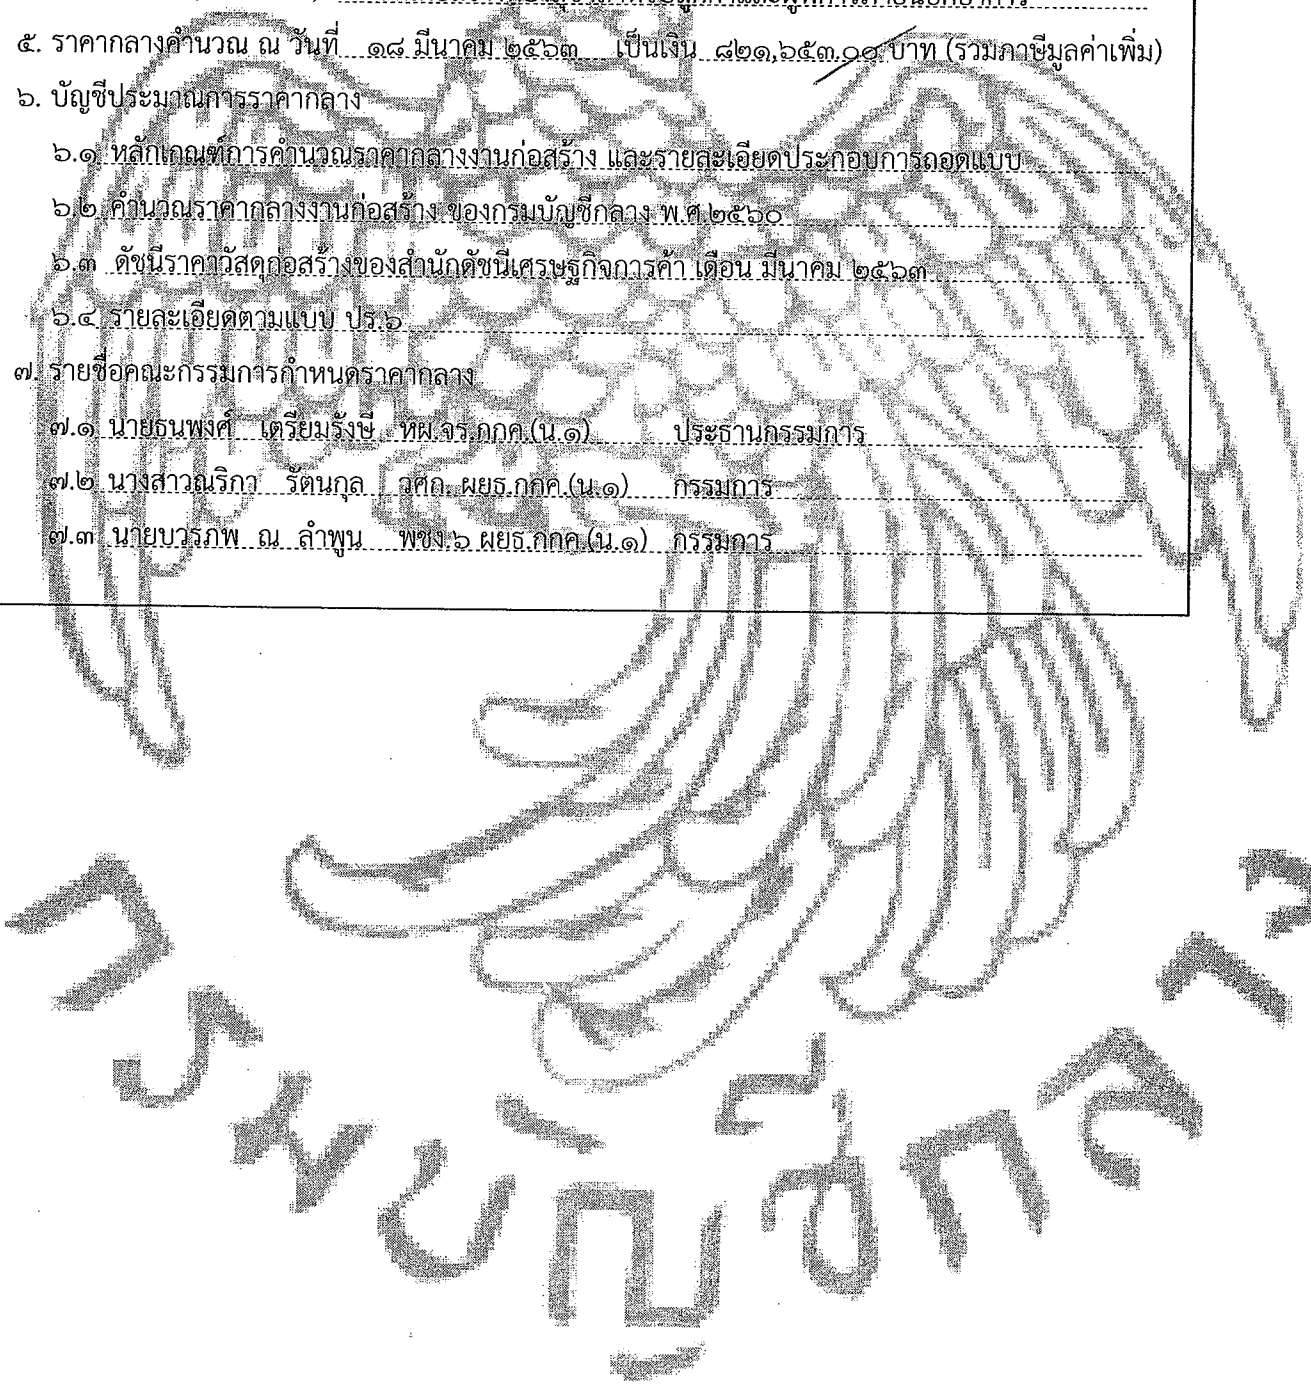 ๕. ราคากลางคำนวณ ณ วันที่ ๑๘ มีนาคม ๒๕๖๓ เป็นเงิน ๘๒๑,๖๕๓.๐๐ บาท (รวมภาษีมูลค่าเพิ่ม)
๖. บัญชีประมาณการราคากลาง
๖.๑ หลักเกณฑ์การคำนวณราคากลางงานก่อสร้าง และรายละเอียดประกอบการถอดแบบ
๖.๒ คำนวณราคากลางงานก่อสร้าง ของกรมบัญชีกลาง พ.ศ.๒๕๖๐
๖.๓ ดัชนีราคาวัสดุก่อสร้างของสำนักดัชนีเศรษฐกิจการค้า เดือน มีนาคม ๒๕๖๓
๖.๔ รายละเอียดตามแบบ ปร.๖
๗. รายชื่อคณะกรรมการกำหนดราคากลาง
๗.๑ นายธนพงศ์ เตรียมรังษี หผ.จร.กกค.(น.๑) ประธานกรรมการ
๗.๒ นางสาวณริกา รัตนกุล วศก. ผยธ.กกค.(น.๑) กรรมการ
๗.๓ นายบวรภพ ณ ลำพูน พชง.๖ ผยธ.กกค.(น.๑) กรรมการ
กรมบัญชีกลาง